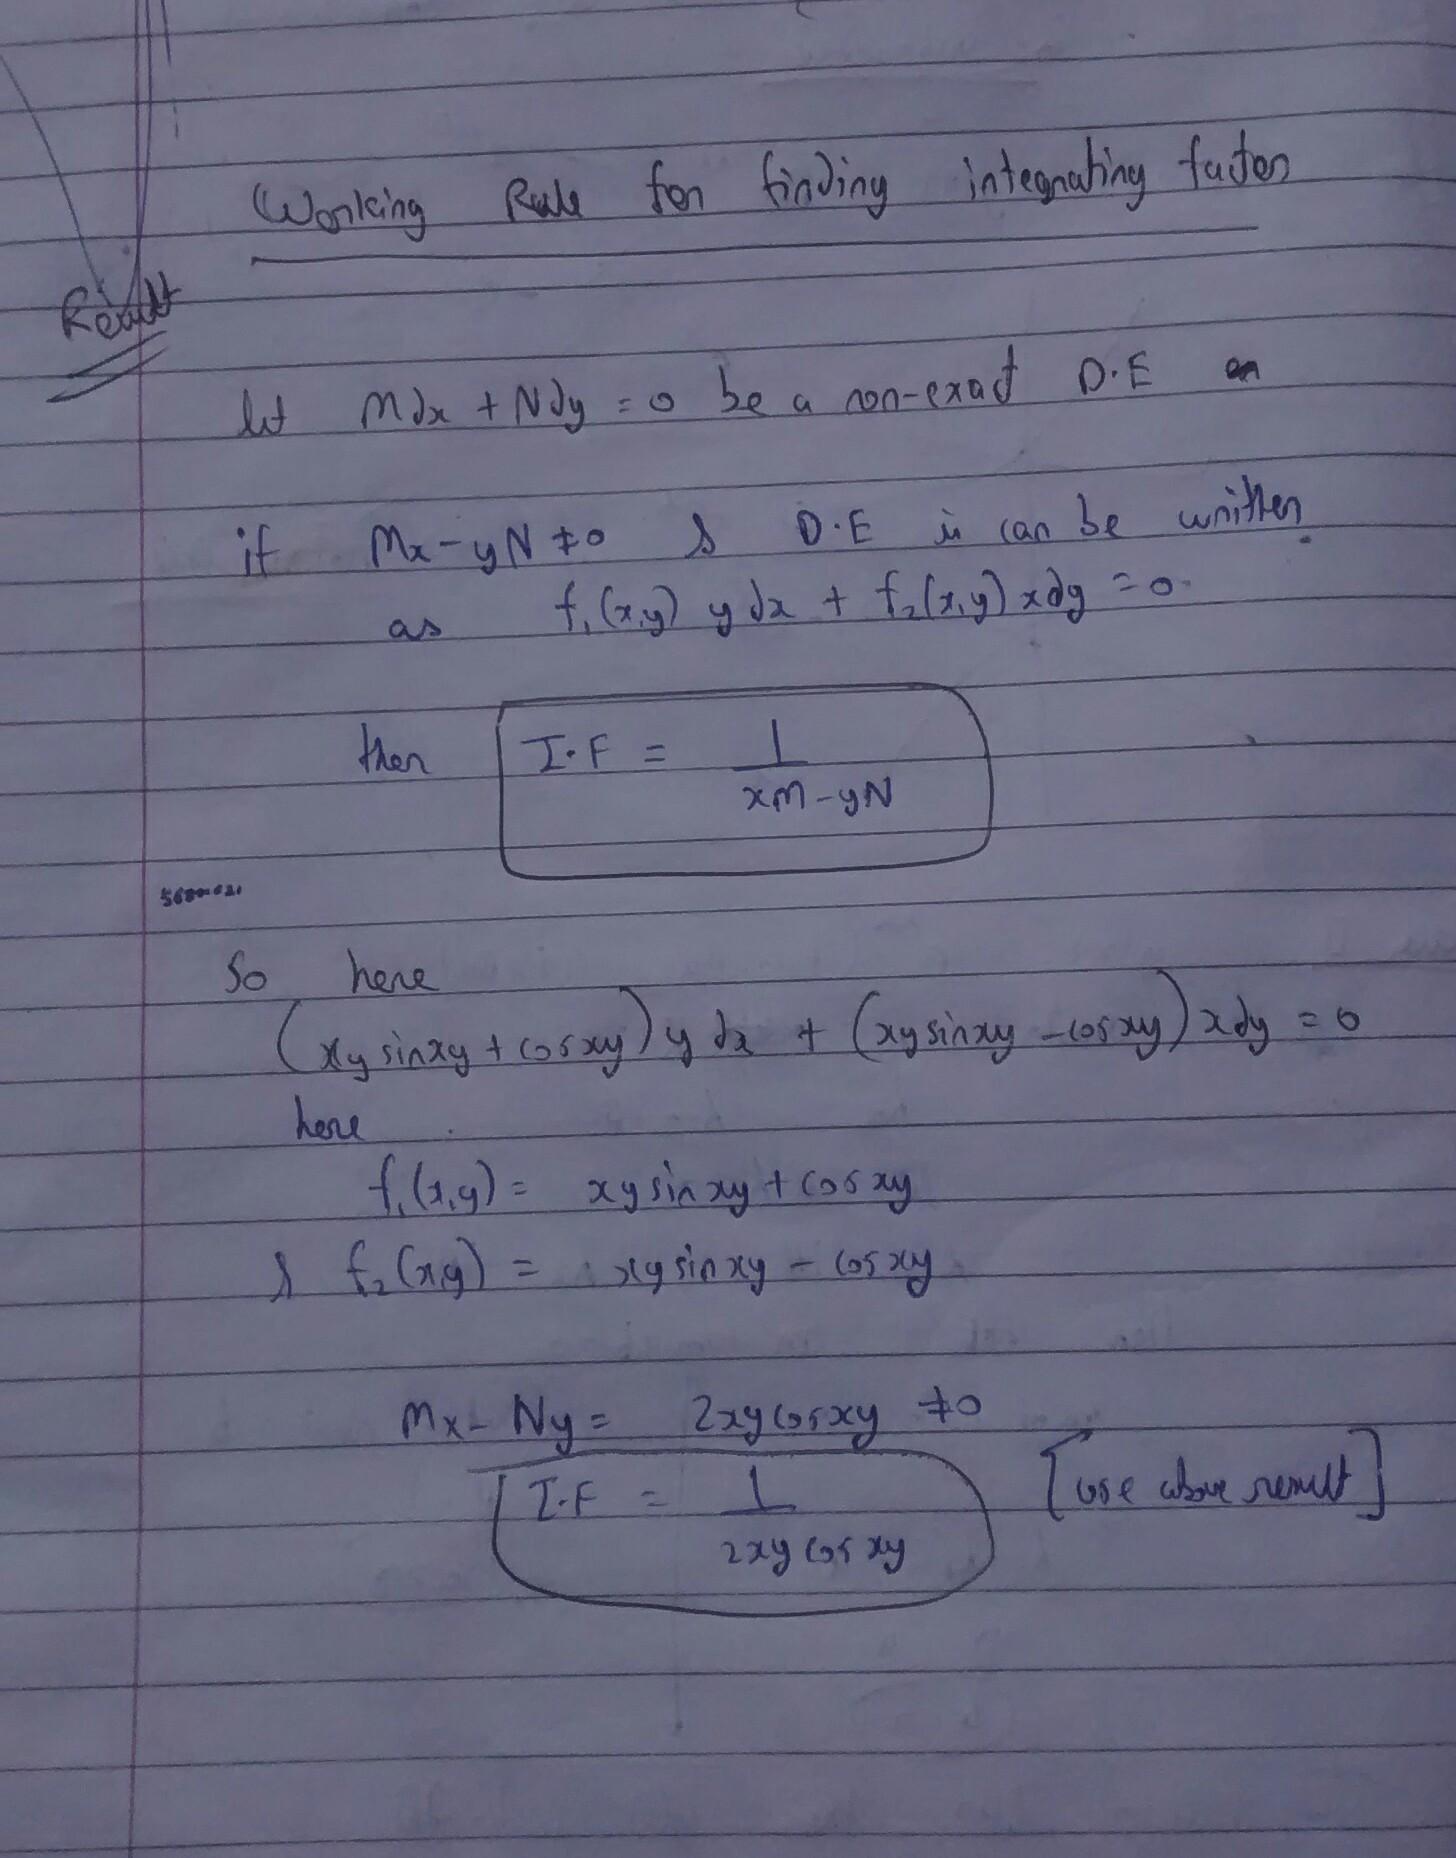 Working Rule for finding integrating factor
Result
let Mdx + Ndy = 0 be a non-exact D.E
if Mx - yN ≠ 0 & D.E is can be written
as f₁(x,y) y dx + f₂(x,y) x dy = 0.
then I.F = 1/(xM - yN)
So here
(xy sinxy + cosxy) y dx + (xy sinxy - cosxy) x dy = 0
here
f₁(x,y) = xy sin xy + cos xy
& f₂(x,y) = xy sin xy - cos xy
Mx - Ny = 2xy cosxy ≠ 0
I.F = 1/(2xy cos xy) [use above result]